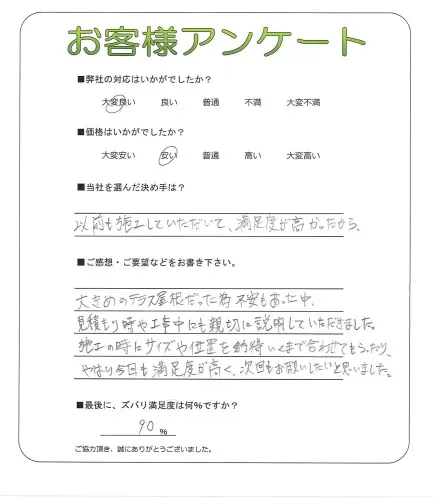 お客様アンケート
■弊社の対応はいかがでしたか?
大変良い 良い 普通 不満 大変不満
■価格はいかがでしたか?
大変安い 安い 普通 高い 大変高い
■当社を選んだ決め手は?
以前も施工していただいて、満足度が高かったから。
■ご感想・ご要望などをお書き下さい。
大きめのテラス屋根だった為不安もあった中、
見積もり時や工事中にも親切に説明していただきました。
施工の時にサイズや位置を納得いくまで合わせてもらったり、
やはり今回も満足度が高く、次回もお願いしたいと思いました。
■最後に、ズバリ満足度は何%ですか?
90 %
ご協力頂き、誠にありがとうございました。